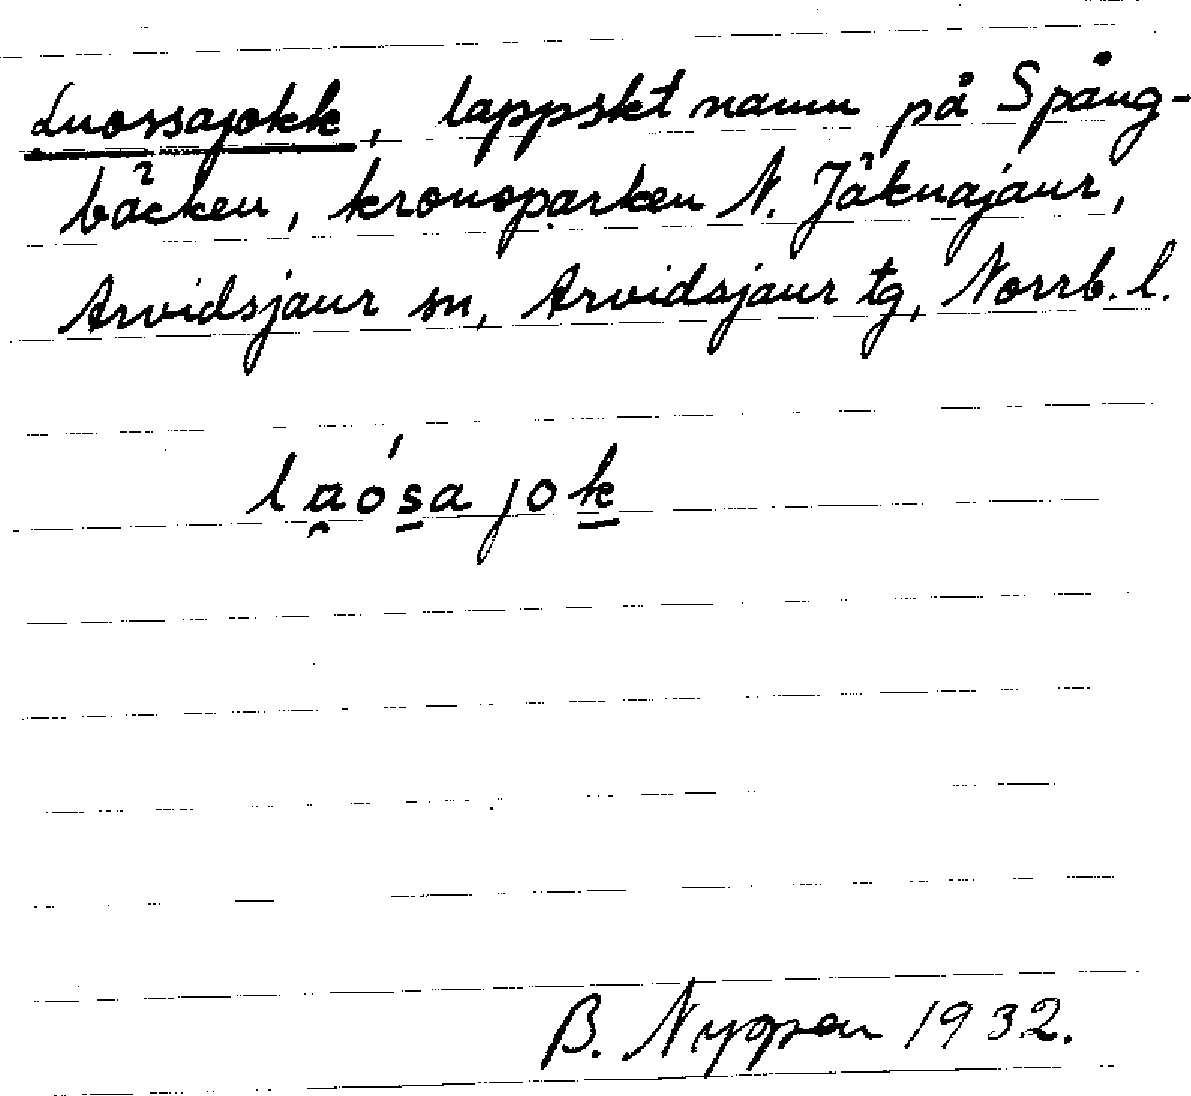 Luossajokk, lappskt namn på Spång-
bäcken, kronoparken N. Jäknajaur,
Arvidsjaur sn, Arvidsjaur tg, Norrb. l.
la̯ós̱a joḵ
B. Nyppen 1932.